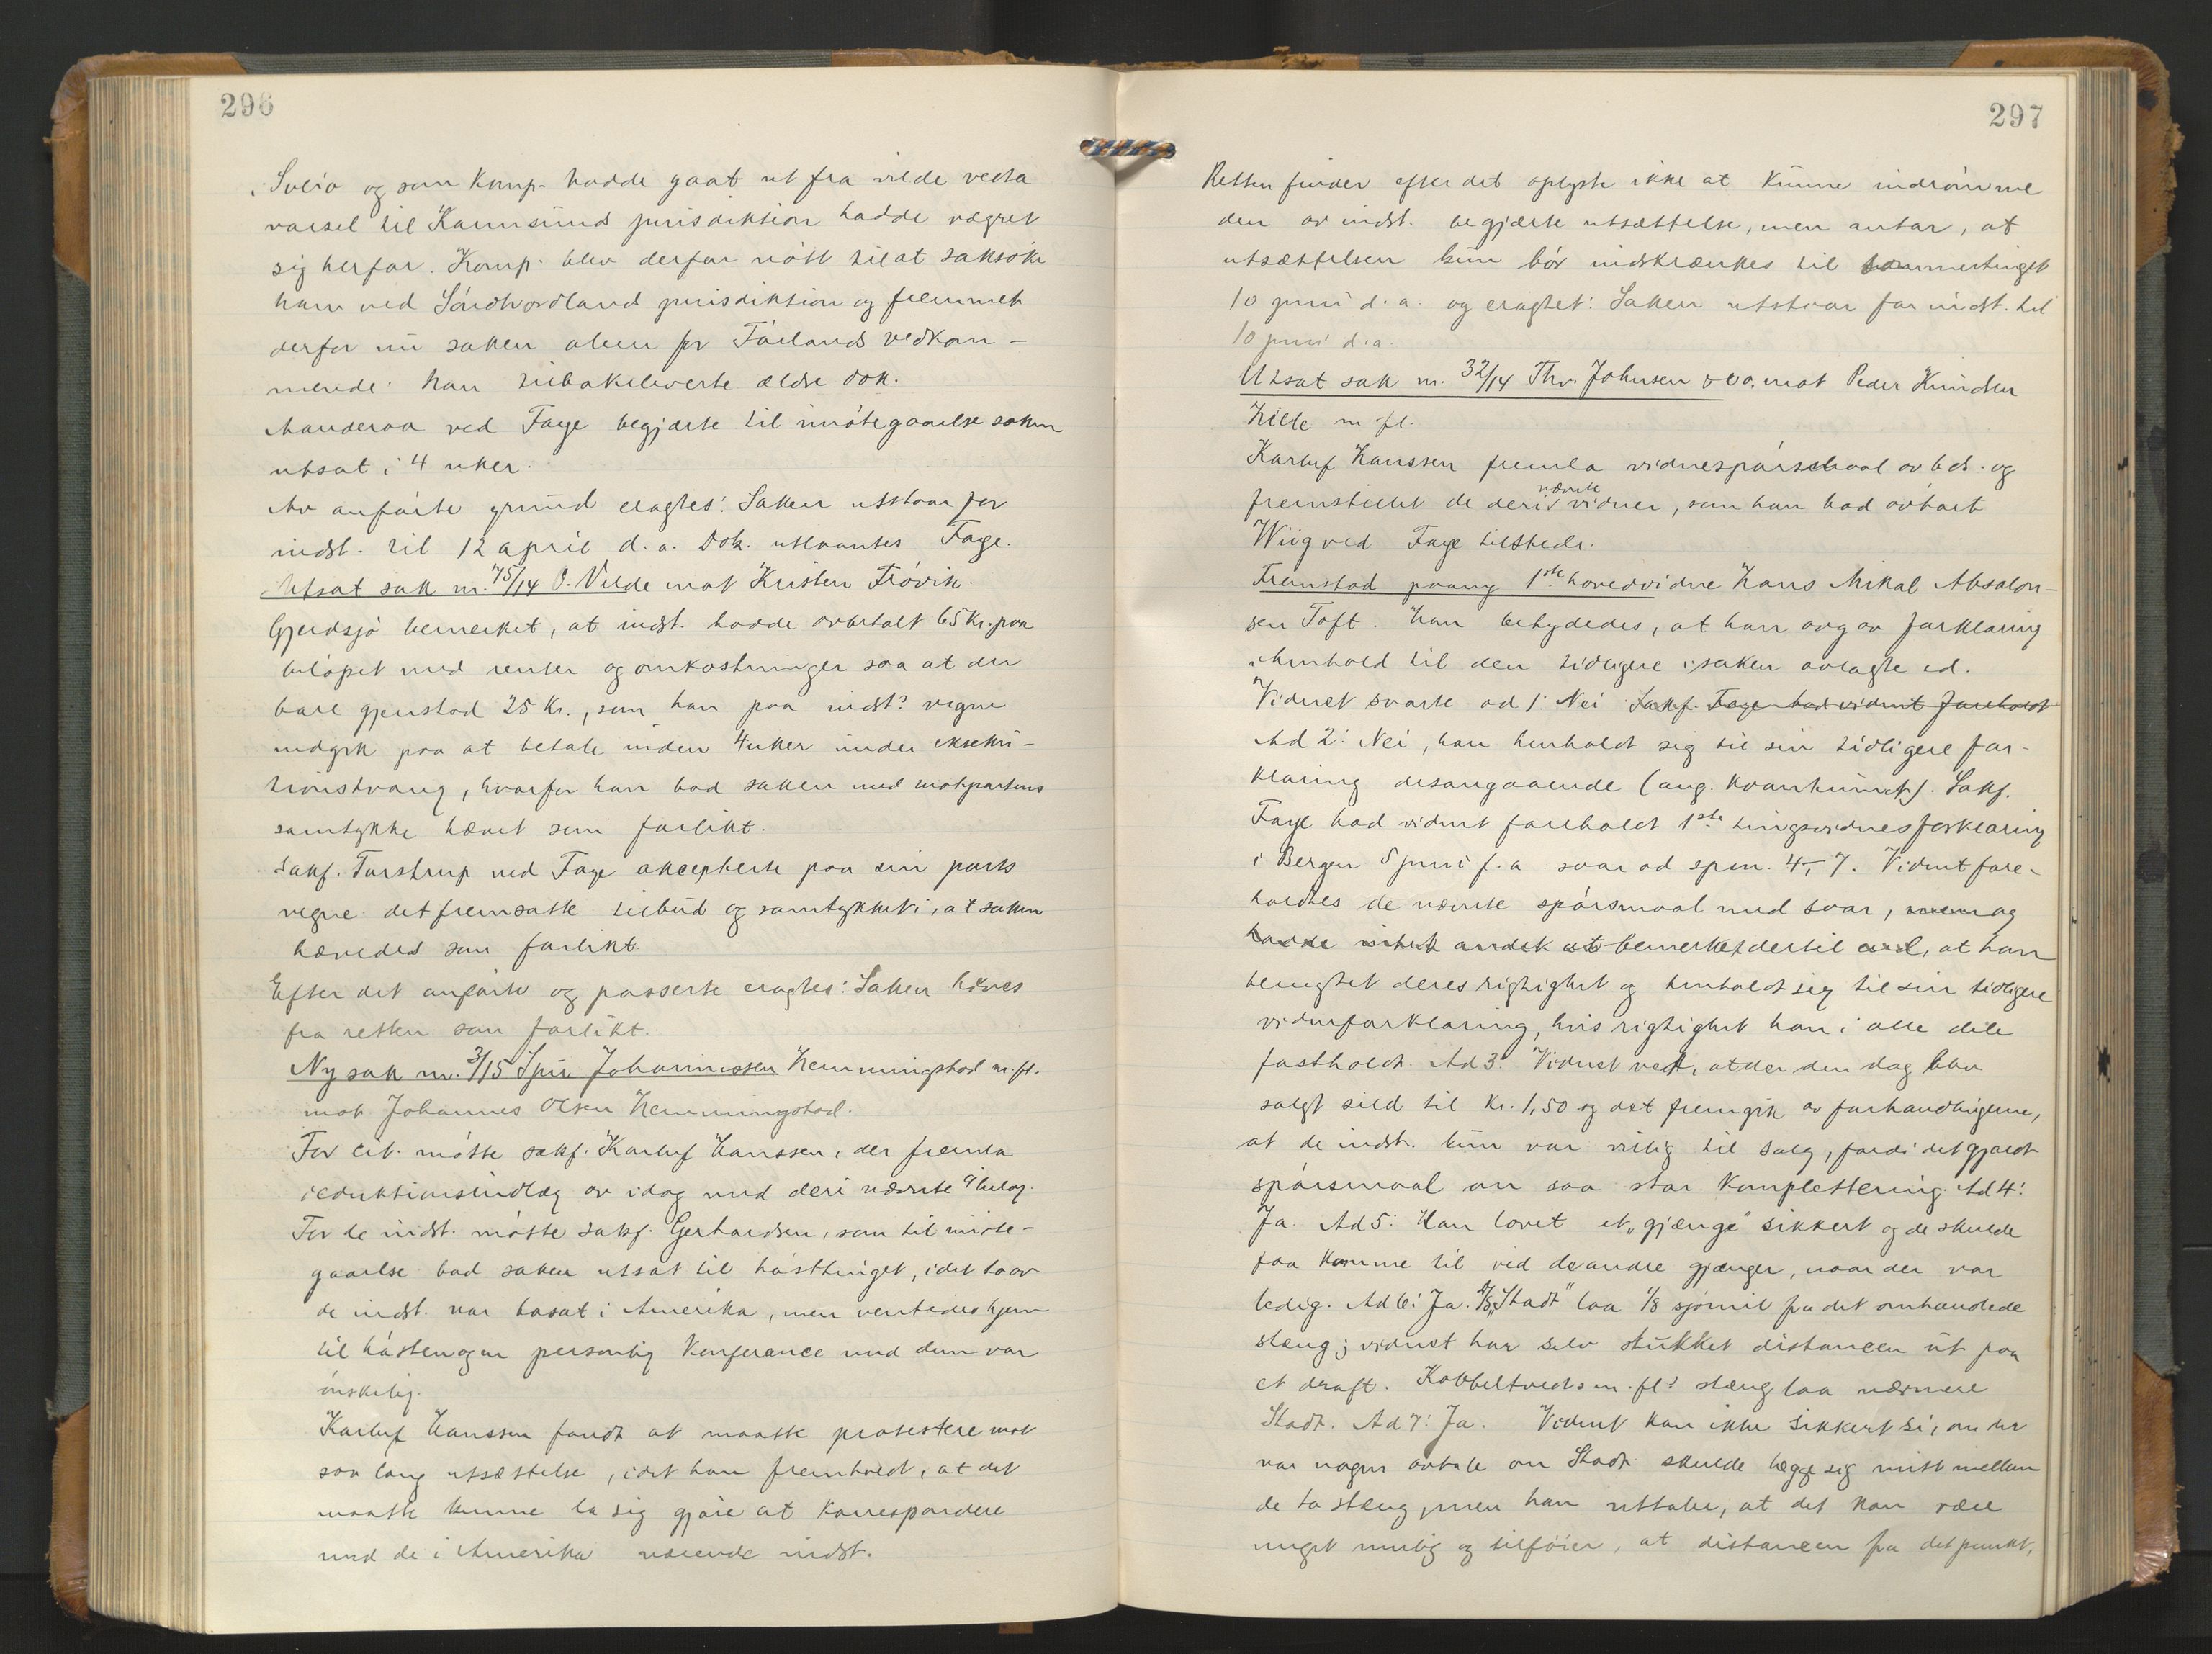 296
i Sveio og som komp. hadde gaat ut fra vilde vedta
varsel til Karmsunds jurisdiktion hadde vægret
sig herfor. Komp. blev derfor nött til at saksöke
ham ved Söndhordland jurisdiktion og fremmet
derfor nu saken alene for Födlands vedkom-
mende. Han tilbakeleverte ældre dok.
ved Faye begjærte til imötegaaelse saken
utsat i 4 uker.
Av anförte grund eragtes: Saken utstaar for
indst. til 12 april d. a. Dok. utlaantes Faye.
Utsat sak nr. 75/14 O. Velde mot Kristen Frövik.
Gjerdsjö bemerket, at indst. hadde avbetalt 65 Kr. paa
belöpet med renter og omkostninger saa at der
bare gjenstod 25 Kr., som han paa indst: vegne
indgik paa at betale inden 4 uker under eksekü-
tionstvang, hvorfor han bad saken med motpartens
samtykke hævet som forlikt.
Sakf. Turstrup ved Faye akcepterte paa sin parts
vegne det fremsatte tilbud og samtykket i, at saken
hævedes som forlikt.
Efter det anförte og passerte eragtes: Saken hæves
fra retten som forlikt.
Ny sak nr. 3/15 Johannessen Hemmingstad m. fl.
mot Johannes Olsen Hemmingstad.
For cit. mötte sakf. Karluf Hanssen, der fremla
deduktionsindlæg av idag med deri nævnte 9 bilag.
For de indst. mötte sakf. Gerhardsen, som til imöte-
gaaelse bad saken utsat til hösttinget, idet to av
de indst. var bosat i Amerika, men ventedes hjem
til hösten og en personlig konferance med dem var
önskelig.
Karluf Hanssen fandt at maatte protestere mot
saa lang utsættelse, idet han fremholdt, at det
maatte kunne la sig gjöre at korrespondere
med de i Amerika værende indst.
297
Retten finder efter det oplyste ikke at kunne indrömme
den av indst. begjærte utsættelse, men antar, at
utsættelsen kun bör indskrænkes til sommertinget
10 juni d. a. og eragtet: Saken utstaar for indst. til
10 juni d. a.
Utsat sak nr. 32/14 Thv. Johnsen & Co. mot Peder Knudsen
Hille m. fl.
Karluf Hanssen fremla vidnespörsmaal av d. d. og
fremstillet de deri nævnte vidner, som han bad avhört
Wiig ved Faye tilstede.
Fremstod paany 1ste hovedvidne Hans Mikal Absalon-
sen Toft. Han betydedes, at han avgav forklaring
i henhold til den tidligere i saken avlagte ed.
Vidnet svarte ad 1: Nei Sakf. Faye bad vidnet foreholdt
Ad 2: Nei, han henholdt sig til sin tidligere for-
klaring desangaaende (ang. kvantumet). Sakf.
Faye bad vidnet foreholdt 1ste tingsvidnes forklaring
i Bergen 5 juni f. a svar ad spm. 4-7. Vidnet fore-
holdtes de nævnte spörsmaal med svar, men og
hadde intet andet at bemerket dertil end, at han
benegtet deres rigtighet og henholdt sig til sin tidligere
vidneforklaring, hvis rigtighet han i alle dele
fastholdt. Ad 3: Vidnet vet, at der den dag blev
solgt sild til kr. 1,50 og det fremgik av forhandlingerne,
at de indst. kun var villig til salg, fordi det gjaldt
spörsmaal om saa stor komplettering. Ad 4:
Ja. Ad 5: Han lovet et „gjænge" sikkert og de skulde
faa komme til ved de andre gjænger, naar der var
ledig. Ad 6: Ja. D/S „Stadt" laa 1/8 sjömil fra det omhandlede
stæng; vidnet har selv stukket distancen ut paa
et draft. Kobbeltvedts m. fl! stæng laa nærmere
Stadt. Ad 7: Ja. Vidnet kan ikke sikkert si, om der
var nogen avtale om Stadt skulde lægge sig mitt mellem
de to stæng, men han uttaler, at det kan være
meget mulig og tilföier, at distancen fra det punkt,